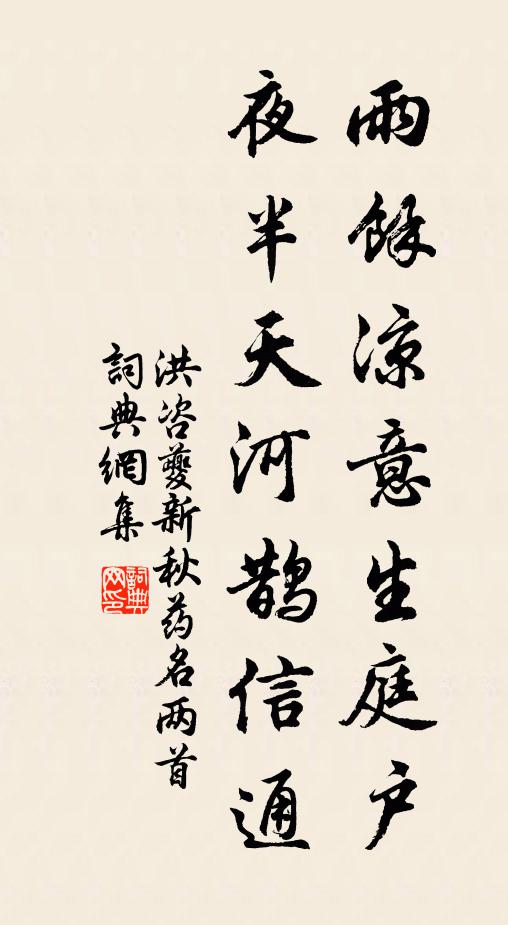 雨餘涼意生庭户
夜半天河鹊信通
洪咨夔新秋药名两首
詞典網集
詞典网印